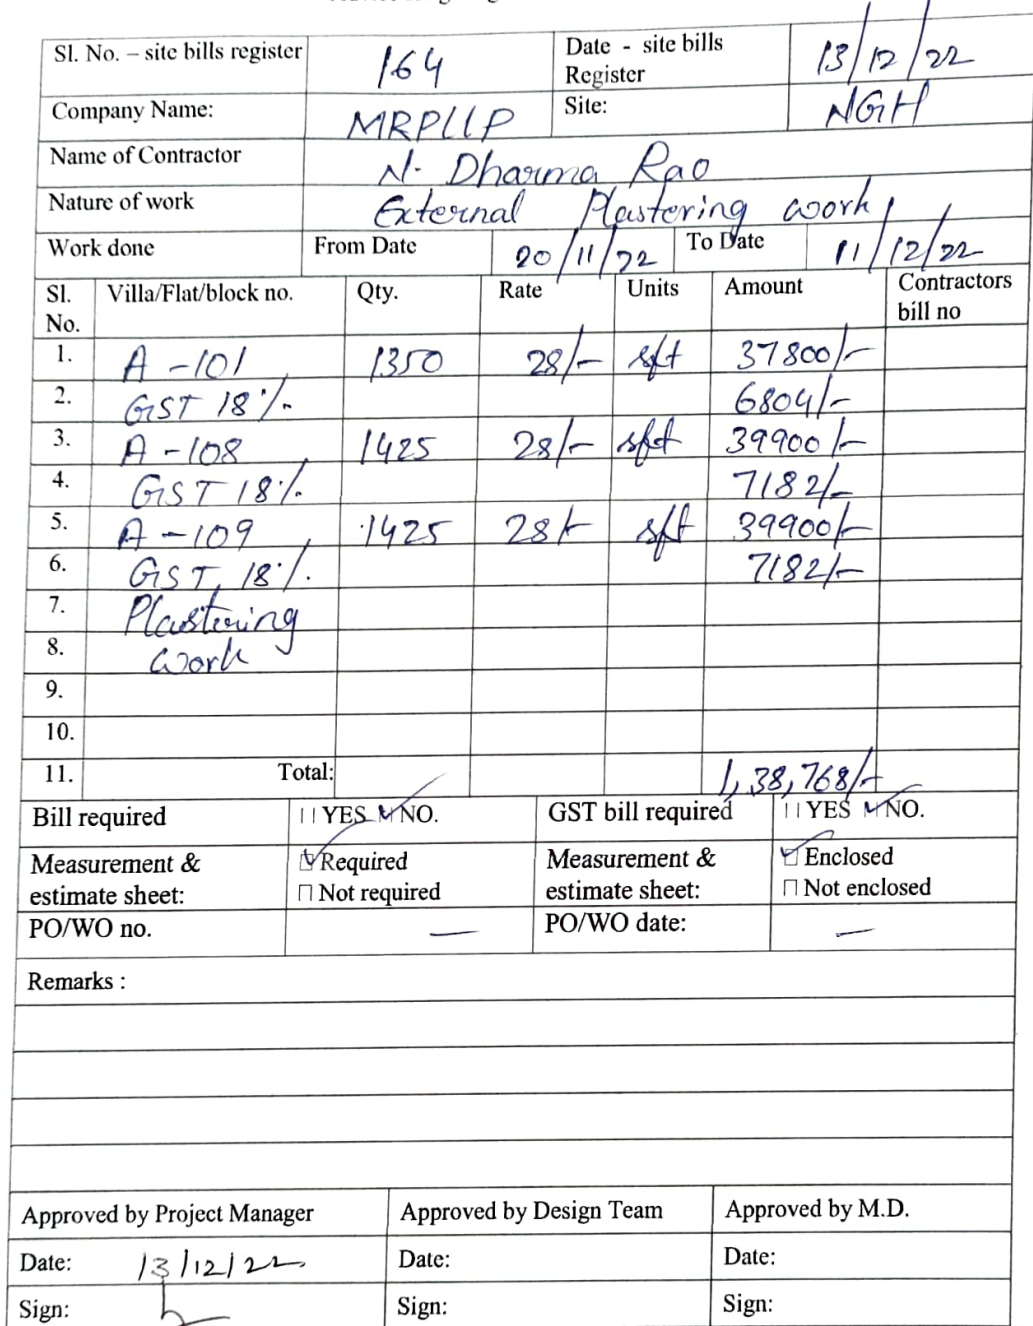 Sl. No. – site bills register 164 Date - site bills Register 13/12/22
Company Name: MRPLLP Site: NGH
Name of Contractor N. Dharma Rao
Nature of work External Plastering work
Work done From Date 20/11/22 To Date 11/12/22
Sl. No. Villa/Flat/block no. Qty. Rate Units Amount Contractors bill no
1. A-101 1350 28/- sft 37800/-
2. GST 18% 6804/-
3. A-108 1425 28/- sft 39900/-
4. GST 18% 7182/-
5. A-109 1425 28/- sft 39900/-
6. GST 18% 7182/-
7. Plastering
8. work
9.
10.
11. Total: 1,38,768/-
Bill required YES NO. GST bill required YES NO.
Measurement & estimate sheet: Required Measurement & estimate sheet: Enclosed
Not required Not enclosed
PO/WO no. — PO/WO date: —
Remarks :
Approved by Project Manager Approved by Design Team Approved by M.D.
Date: 13/12/22 Date: Date:
Sign: Sign: Sign: